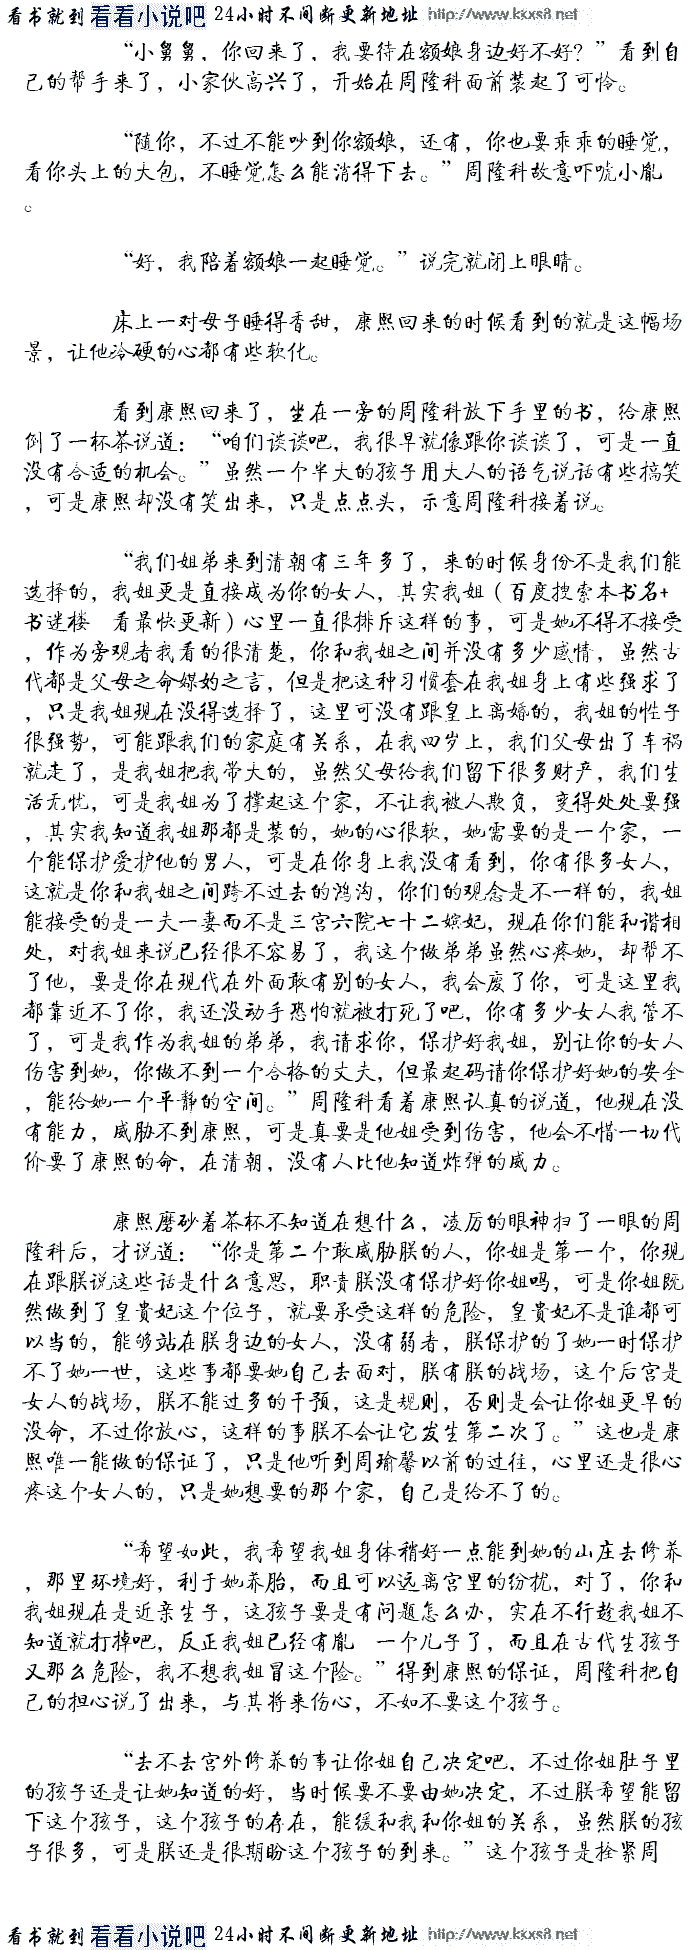 看书就到 看看小说吧 24小时不间断更新地址 http://www.kkxs8.net
“小舅舅，你回来了，我要待在额娘身边好不好？”看到自
己的帮手来了，小家伙高兴了，开始在周隆科面前装起了可怜。
“随你，不过不能吵到你额娘，还有，你也要乖乖的睡觉，
看你头上的大包，不睡觉怎么能消得下去。”周隆科故意吓唬小胤
。
“好，我陪着额娘一起睡觉。”说完就闭上眼睛。
床上一对母子睡得香甜，康熙回来的时候看到的就是这幅场
景，让他冷硬的心都有些软化。
看到康熙回来了，坐在一旁的周隆科放下手里的书，给康熙
倒了一杯茶说道：“咱们谈谈吧，我很早就像跟你谈谈了，可是一直
没有合适的机会。”虽然一个半大的孩子用大人的语气说话有些搞笑
，可是康熙却没有笑出来，只是点点头，示意周隆科接着说。
“我们姐弟来到清朝有三年多了，来的时候身份不是我们能
选择的，我姐更是直接成为你的女人，其实我姐（百度搜索本书名+
书迷楼 看最快更新）心里一直很排斥这样的事，可是她不得不接受
，作为旁观者我看的很清楚，你和我姐之间并没有多少感情，虽然古
代都是父母之命媒妁之言，但是把这种习惯套在我姐身上有些强求了
，只是我姐现在没得选择了，这里可没有跟皇上离婚的，我姐的性子
很强势，可能跟我们的家庭有关系，在我四岁上，我们父母出了车祸
就走了，是我姐把我带大的，虽然父母给我们留下很多财产，我们生
活无忧，可是我姐为了撑起这个家，不让我被人欺负，变得处处要强
，其实我知道我姐那都是装的，她的心很软，她需要的是一个家，一
个能保护爱护他的男人，可是在你身上我没有看到，你有很多女人，
这就是你和我姐之间跨不过去的鸿沟，你们的观念是不一样的，我姐
能接受的是一夫一妻而不是三宫六院七十二嫔妃，现在你们能和谐相
处，对我姐来说已经很不容易了，我这个做弟弟虽然心疼她，却帮不
了他，要是你在现代在外面敢有别的女人，我会废了你，可是这里我
都靠近不了你，我还没动手恐怕就被打死了吧，你有多少女人我管不
了，可是我作为我姐的弟弟，我请求你，保护好我姐，别让你的女人
伤害到她，你做不到一个合格的丈夫，但最起码请你保护好她的安全
，能给她一个平静的空间。”周隆科看着康熙认真的说道，他现在没
有能力，威胁不到康熙，可是真要是他姐受到伤害，他会不惜一切代
价要了康熙的命，在清朝，没有人比他知道炸弹的威力。
康熙磨砂着茶杯不知道在想什么，凌厉的眼神扫了一眼的周
隆科后，才说道：“你是第二个敢威胁朕的人，你姐是第一个，你现
在跟朕说这些话是什么意思，职责朕没有保护好你姐吗，可是你姐既
然做到了皇贵妃这个位子，就要承受这样的危险，皇贵妃不是谁都可
以当的，能够站在朕身边的女人，没有弱者，朕保护的了她一时保护
不了她一世，这些事都要她自己去面对，朕有朕的战场，这个后宫是
女人的战场，朕不能过多的干预，这是规则，否则是会让你姐更早的
没命，不过你放心，这样的事朕不会让它发生第二次了。”这也是康
熙唯一能做的保证了，只是他听到周瑜馨以前的过往，心里还是很心
疼这个女人的，只是她想要的那个家，自己是给不了的。
“希望如此，我希望我姐身体稍好一点能到她的山庄去修养
，那里环境好，利于她养胎，而且可以远离宫里的纷扰，对了，你和
我姐现在是近亲生子，这孩子要是有问题怎么办，实在不行趁我姐不
知道就打掉吧，反正我姐已经有胤 一个儿子了，而且在古代生孩子
又那么危险，我不想我姐冒这个险。”得到康熙的保证，周隆科把自
己的担心说了出来，与其将来伤心，不如不要这个孩子。
“去不去宫外修养的事让你姐自己决定吧，不过你姐肚子里
的孩子还是让她知道的好，当时候要不要由她决定，不过朕希望能留
下这个孩子，这个孩子的存在，能缓和我和你姐的关系，虽然朕的孩
子很多，可是朕还是很期盼这个孩子的到来。”这个孩子是拴紧周
看书就到 看看小说吧 24小时不间断更新地址 http://www.kkxs8.net